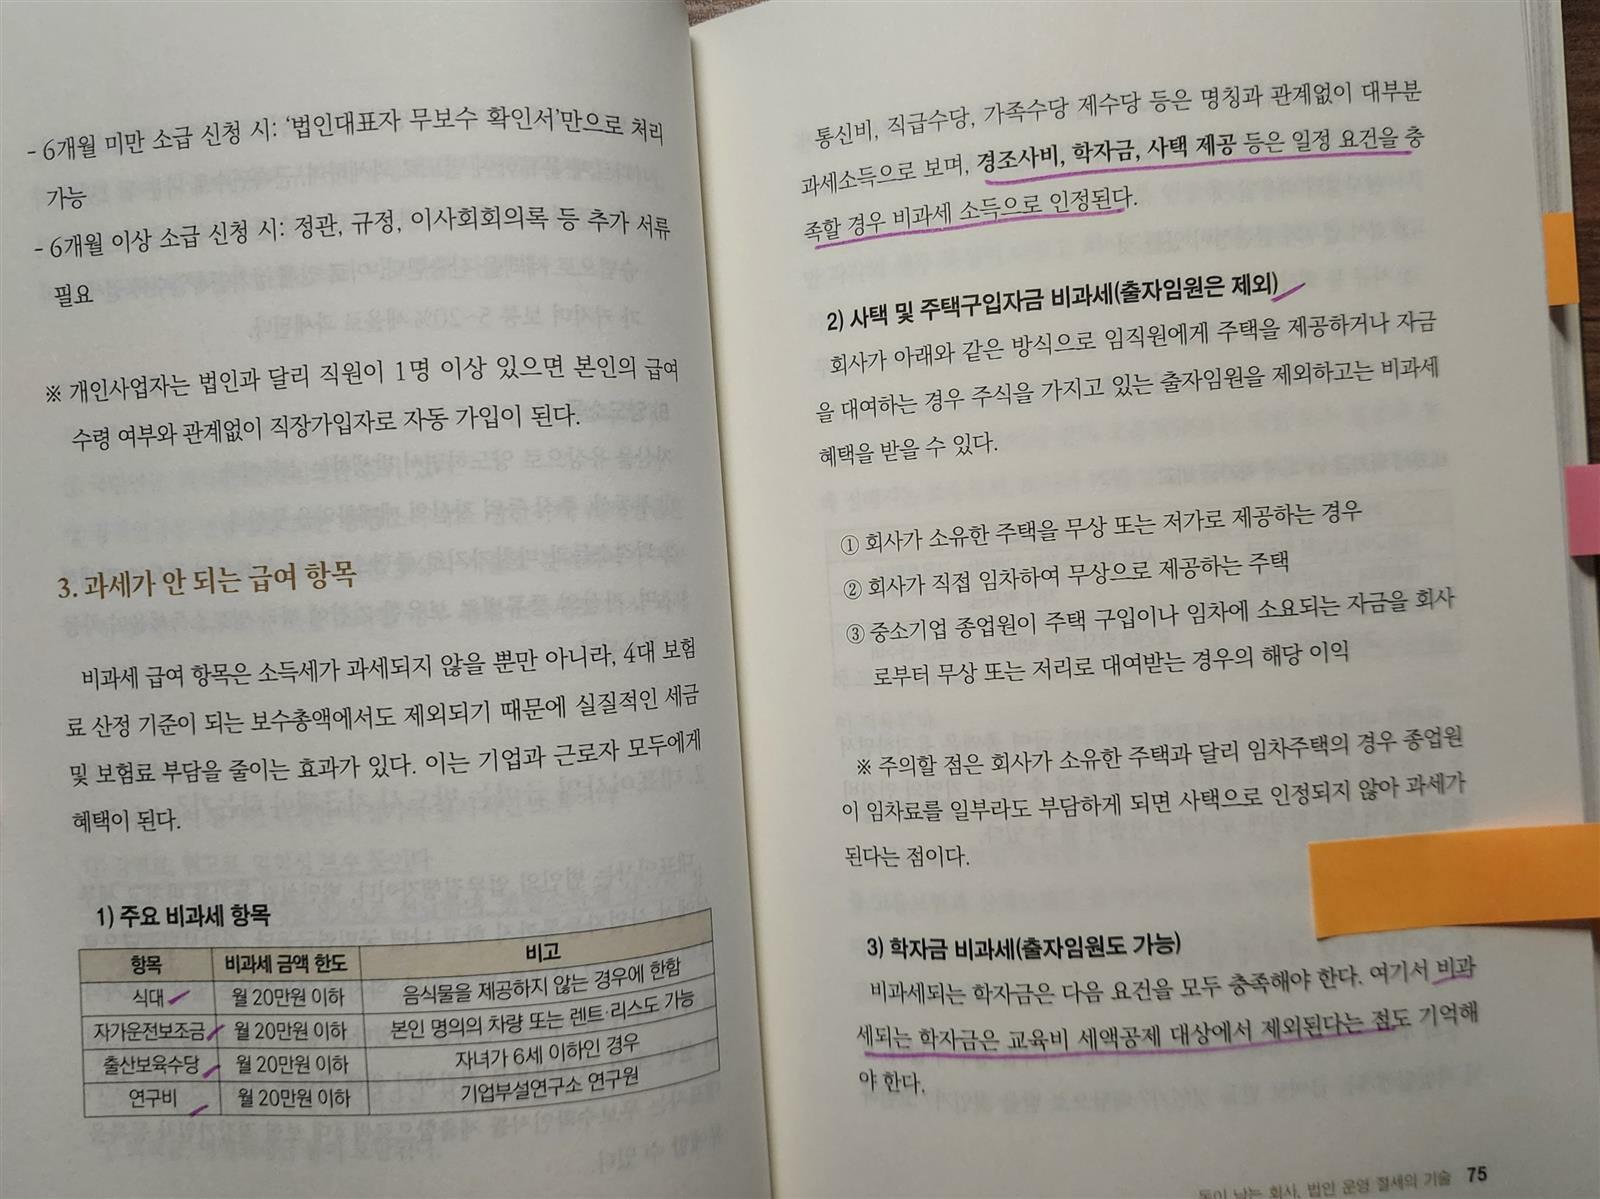 - 6개월 미만 소급 신청 시: ‘법인대표자 무보수 확인서’만으로 처리
가능
- 6개월 이상 소급 신청 시: 정관, 규정, 이사회회의록 등 추가 서류
필요
※ 개인사업자는 법인과 달리 직원이 1명 이상 있으면 본인의 급여
수령 여부와 관계없이 직장가입자로 자동 가입이 된다.
3. 과세가 안 되는 급여 항목
비과세 급여 항목은 소득세가 과세되지 않을 뿐만 아니라, 4대 보험
료 산정 기준이 되는 보수총액에서도 제외되기 때문에 실질적인 세금
및 보험료 부담을 줄이는 효과가 있다. 이는 기업과 근로자 모두에게
혜택이 된다.
1) 주요 비과세 항목
항목 비과세 금액 한도 비고
식대 월 20만원 이하 음식물을 제공하지 않는 경우에 한함
자가운전보조금 월 20만원 이하 본인 명의의 차량 또는 렌트·리스도 가능
출산보육수당 월 20만원 이하 자녀가 6세 이하인 경우
연구비 월 20만원 이하 기업부설연구소 연구원
통신비, 직급수당, 가족수당 제수당 등은 명칭과 관계없이 대부분
과세소득으로 보며, 경조사비, 학자금, 사택 제공 등은 일정 요건을 충
족할 경우 비과세 소득으로 인정된다.
2) 사택 및 주택구입자금 비과세(출자임원은 제외)
회사가 아래와 같은 방식으로 임직원에게 주택을 제공하거나 자금
을 대여하는 경우 주식을 가지고 있는 출자임원을 제외하고는 비과세
혜택을 받을 수 있다.
① 회사가 소유한 주택을 무상 또는 저가로 제공하는 경우
② 회사가 직접 임차하여 무상으로 제공하는 주택
③ 중소기업 종업원이 주택 구입이나 임차에 소요되는 자금을 회사
로부터 무상 또는 저리로 대여받는 경우의 해당 이익
※ 주의할 점은 회사가 소유한 주택과 달리 임차주택의 경우 종업원
이 임차료를 일부라도 부담하게 되면 사택으로 인정되지 않아 과세가
된다는 점이다.
3) 학자금 비과세(출자임원도 가능)
비과세되는 학자금은 다음 요건을 모두 충족해야 한다. 여기서 비과
세되는 학자금은 교육비 세액공제 대상에서 제외된다는 점도 기억해
야 한다.
돈이 남는 회사, 법인 운영 절세의 기술 75